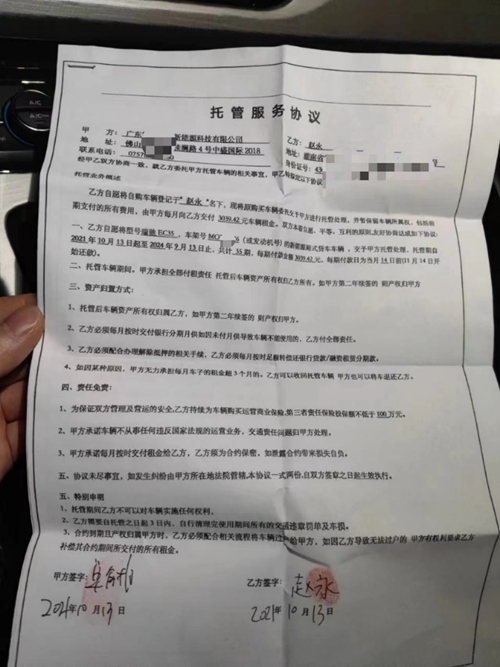 托管服务协议
甲 方：广东 新能源科技有限公司 乙方：赵永
地 址：佛山 洲路4号中盛国际2018 地址：湖南省
联系电话：0757 身份证号：43
经甲乙双方协商一致，就乙方委托甲方托管车辆的相关事宜，甲乙 以下协议
托管业务概述
乙方自愿将自购车辆登记于“赵永”名下，现将原购买车辆委托交予甲方进行托管处理，并暂保留车辆所属权，包括按
期支付的所有费用，由甲方每月向乙方交付 3039.42 元车辆租金。双方本着自愿、平等、互利的原则友好协商达成如下协议：
一、乙方自愿将型号 EC35，车架号 MO （或发动机号）的新能源厢式货车车辆，交予甲方托管处理，托管期自
2021年10月13日起至2024年9月13日止，共计35期，每期付款金额 3039.42 元，每期付款日为当月14日前（11月14日开
始还款）。
二、托管车辆期间，甲方承担全部付租责任 托管后车辆资产所有权归乙方所有。如甲方第二年续签的 则产权归甲方
三、资产归置方式：
1、托管后车辆资产所有权归属乙方，如甲方第二年续签的 则产权归甲方。
2、乙方必须每月按时交付银行分期月供如因未付月供导致车辆不能使用的，乙方付全部责任。
3、乙方必须配合办理解除抵押的相关手续，乙方必须每月按时足额偿还银行贷款/融资租赁分期款。
4、如因某种原因，甲方无力承担每月车子的租金超3个月的，乙方可以收回托管车辆 甲方也可以将车退还乙方。
四、责任免责：
1、为保证双方管理及营运的安全，乙方持续为车辆购买运营商业保险，第三者责任保险投保额不低于100万元。
2、甲方承诺车辆不从事任何违反国家法规的运营业务，交通责任问题归甲方处理。
3、甲方承诺每月按时交付租金给乙方，乙方须为合约保密，如泄露合约带来损失自负。
五、协议未尽事宜，如发生纠纷由甲方所在地法院管辖，本协议一式两份，自双方签章之日起生效执行。
五、特别申明
1、托管期间乙方不可以对车辆实施任何权利，
2、乙方需要自托管之日起3日内、自行清理完使用期间所有的交通违章罚单及车损。
3、合约到期且产权归属甲方时，乙方必须配合相关流程将车辆过户给甲方，如因乙方导致无法过户的 甲方有权利要求乙方
补偿其合约期间所交付的所有租金。
甲方签字： 乙方签字：赵永
2021年10月13日 2021年10月13日